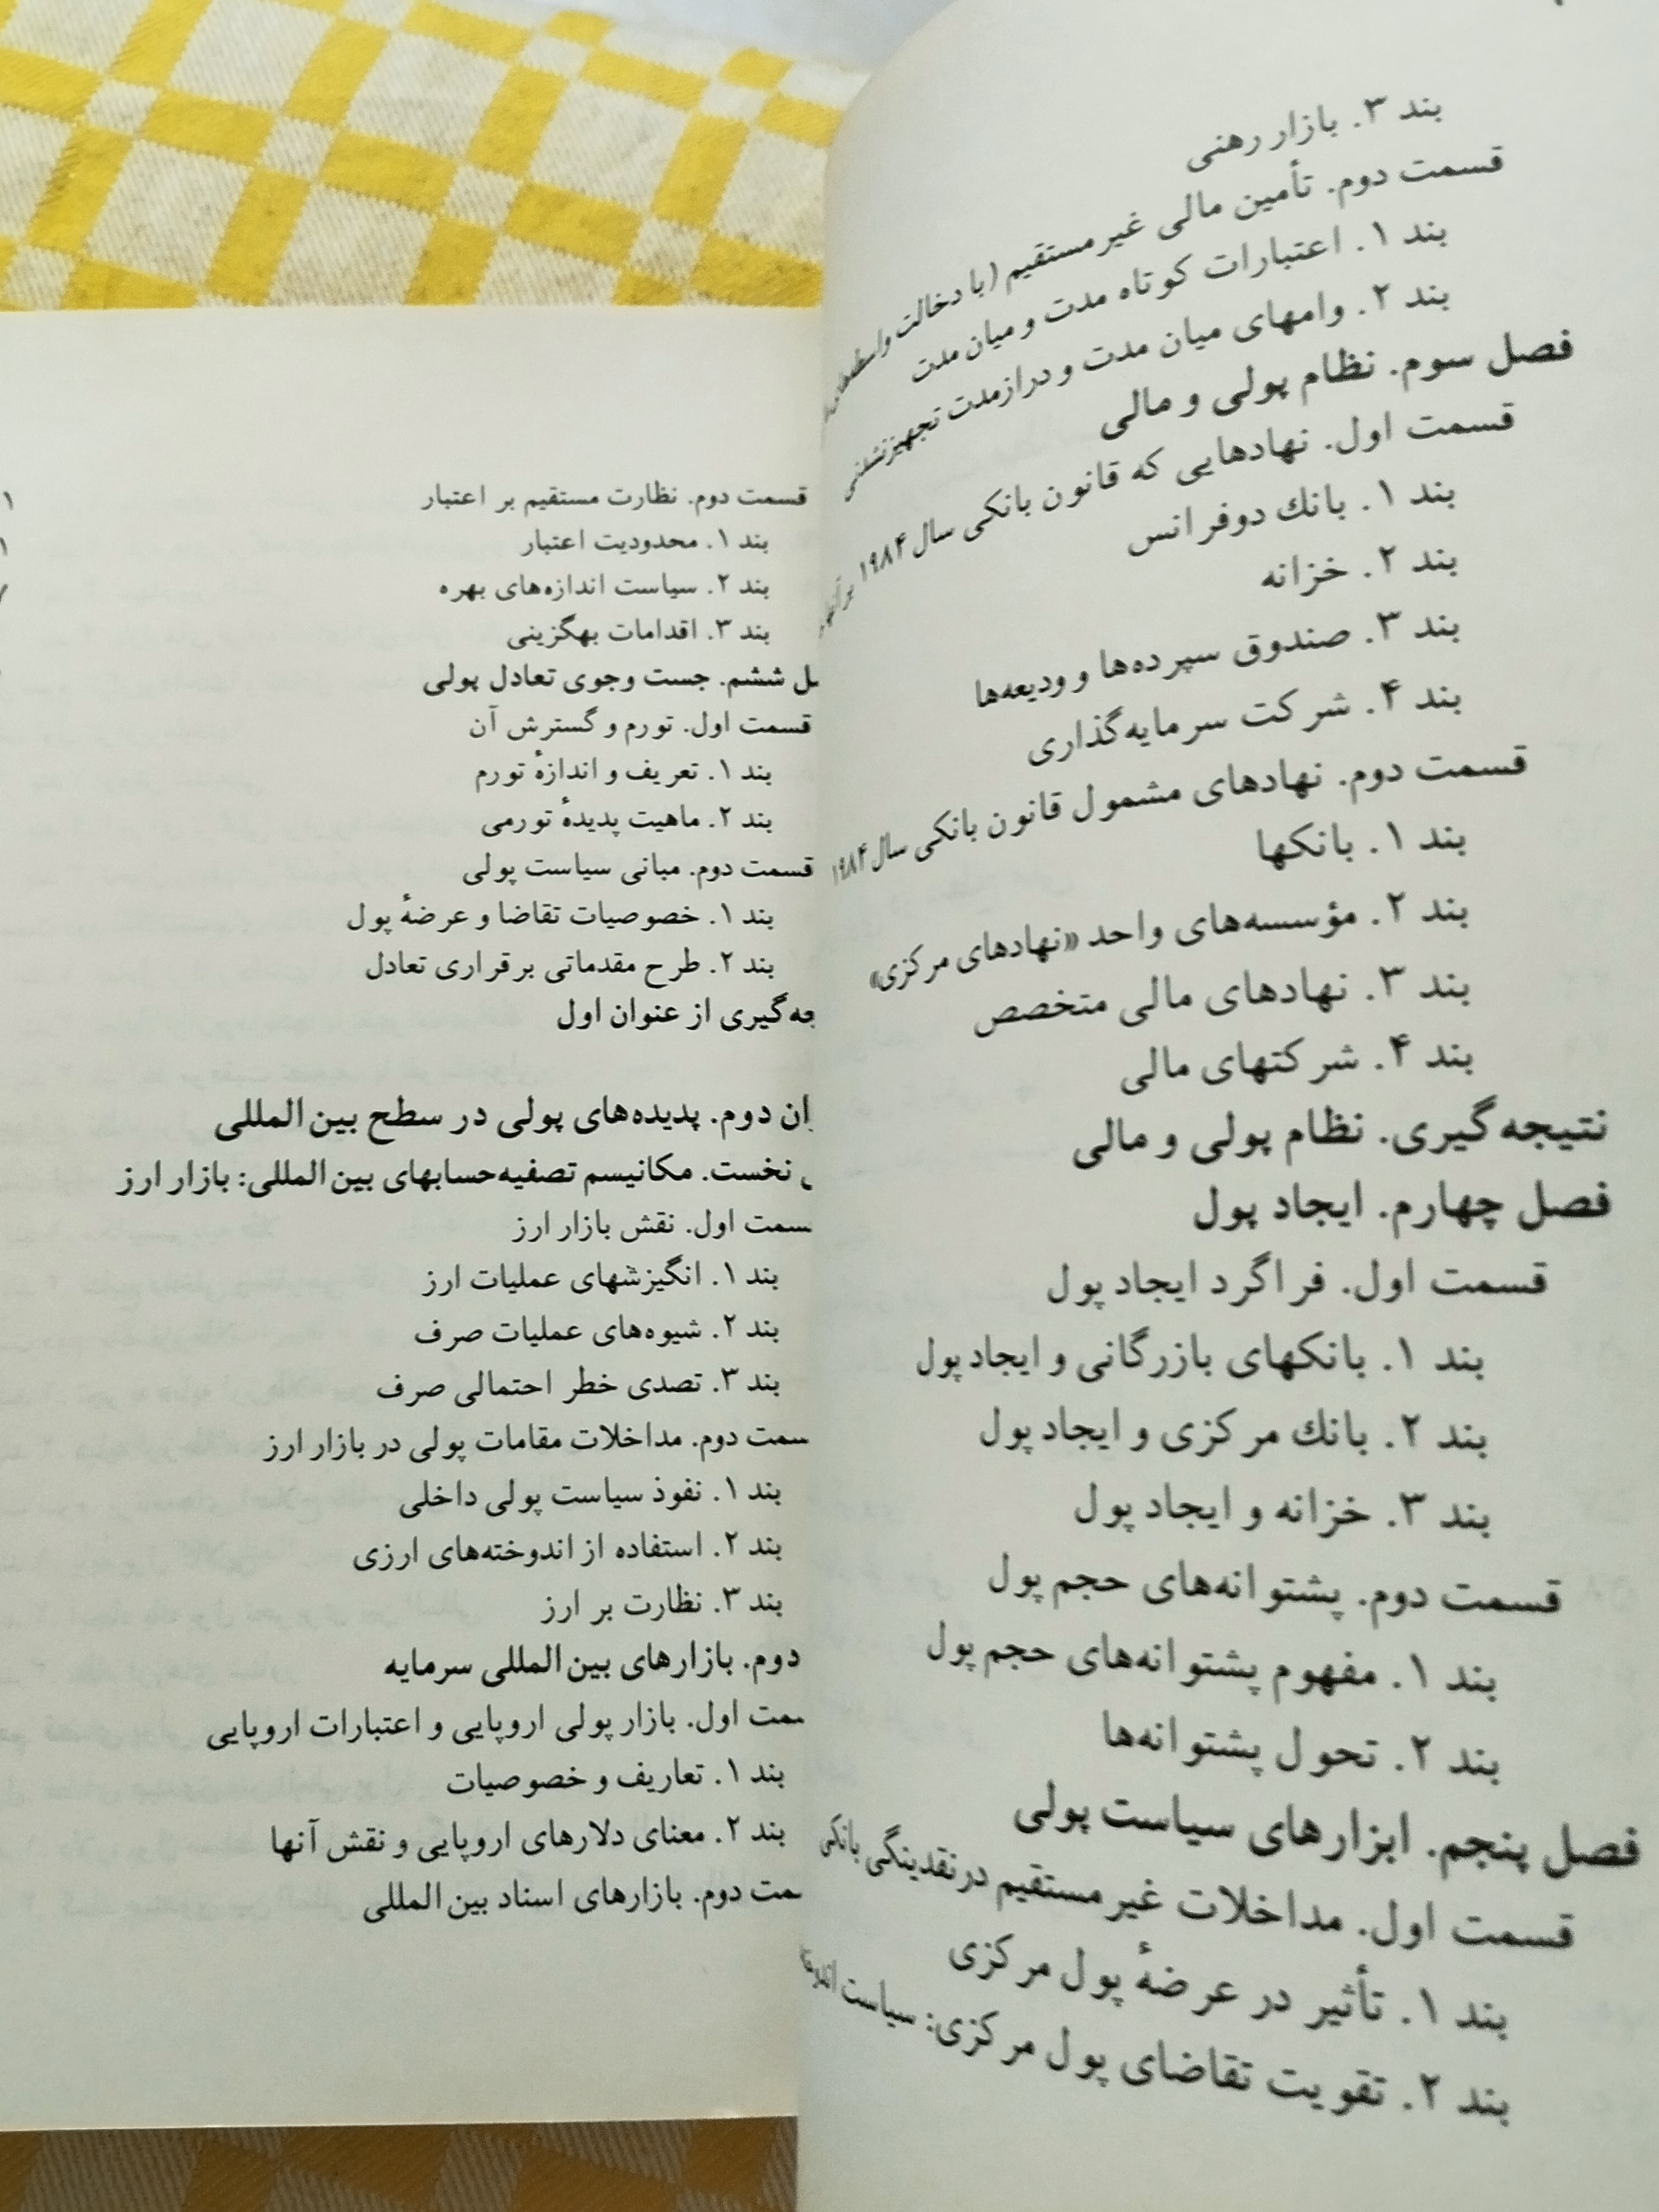 بند ۳. بازار رهنی
قسمت دوم. تأمین مالی غیرمستقیم (با دخالت
بند ۱. اعتبارات کوتاه مدت و میان مدت
بند ۲. وامهای میان مدت و درازمدت تجهیزنشدنی
فصل سوم. نظام پولی و مالی
قسمت اول. نهادهایی که قانون بانکی سال ۱۹۸۴
بند ۱. بانك دوفرانس
بند ۲. خزانه
بند ۳. صندوق سپرده‌ها و ودیعه‌ها
بند ۴. شرکت سرمایه‌گذاری
قسمت دوم. نهادهای مشمول قانون بانکی سال ۱۹۸۴
بند ۱. بانکها
بند ۲. مؤسسه‌های واحد «نهادهای مرکزی»
بند ۳. نهادهای مالی متخصص
بند ۴. شرکتهای مالی
نتیجه‌گیری. نظام پولی و مالی
فصل چهارم. ایجاد پول
قسمت اول. فراگرد ایجاد پول
بند ۱. بانکهای بازرگانی و ایجاد پول
بند ۲. بانك مرکزی و ایجاد پول
بند ۳. خزانه و ایجاد پول
قسمت دوم. پشتوانه‌های حجم پول
بند ۱. مفهوم پشتوانه‌های حجم پول
بند ۲. تحول پشتوانه‌ها
فصل پنجم. ابزارهای سیاست پولی
قسمت اول. مداخلات غیرمستقیم در نقدینگی بانکی
بند ۱. تأثیر در عرضهٔ پول مرکزی
بند ۲. تقویت تقاضای پول مرکزی: سیاست
قسمت دوم. نظارت مستقیم بر اعتبار
بند ۱. محدودیت اعتبار
بند ۲. سیاست اندازه‌های بهره
بند ۳. اقدامات بهگزینی
ششم. جست وجوی تعادل پولی
قسمت اول. تورم و گسترش آن
بند ۱. تعریف و اندازهٔ تورم
بند ۲. ماهیت پدیدهٔ تورمی
قسمت دوم. مبانی سیاست پولی
بند ۱. خصوصیات تقاضا و عرضهٔ پول
بند ۲. طرح مقدماتی برقراری تعادل
جه‌گیری از عنوان اول
دوم. پدیده‌های پولی در سطح بین‌المللی
نخست. مکانیسم تصفیه‌حسابهای بین‌المللی: بازار ارز
سمت اول. نقش بازار ارز
بند ۱. انگیزشهای عملیات ارز
بند ۲. شیوه‌های عملیات صرف
بند ۳. تصدی خطر احتمالی صرف
سمت دوم. مداخلات مقامات پولی در بازار ارز
بند ۱. نفوذ سیاست پولی داخلی
بند ۲. استفاده از اندوخته‌های ارزی
بند ۳. نظارت بر ارز
دوم. بازارهای بین‌المللی سرمایه
سمت اول. بازار پولی اروپایی و اعتبارات اروپایی
بند ۱. تعاریف و خصوصیات
بند ۲. معنای دلارهای اروپایی و نقش آنها
مت دوم. بازارهای اسناد بین‌المللی